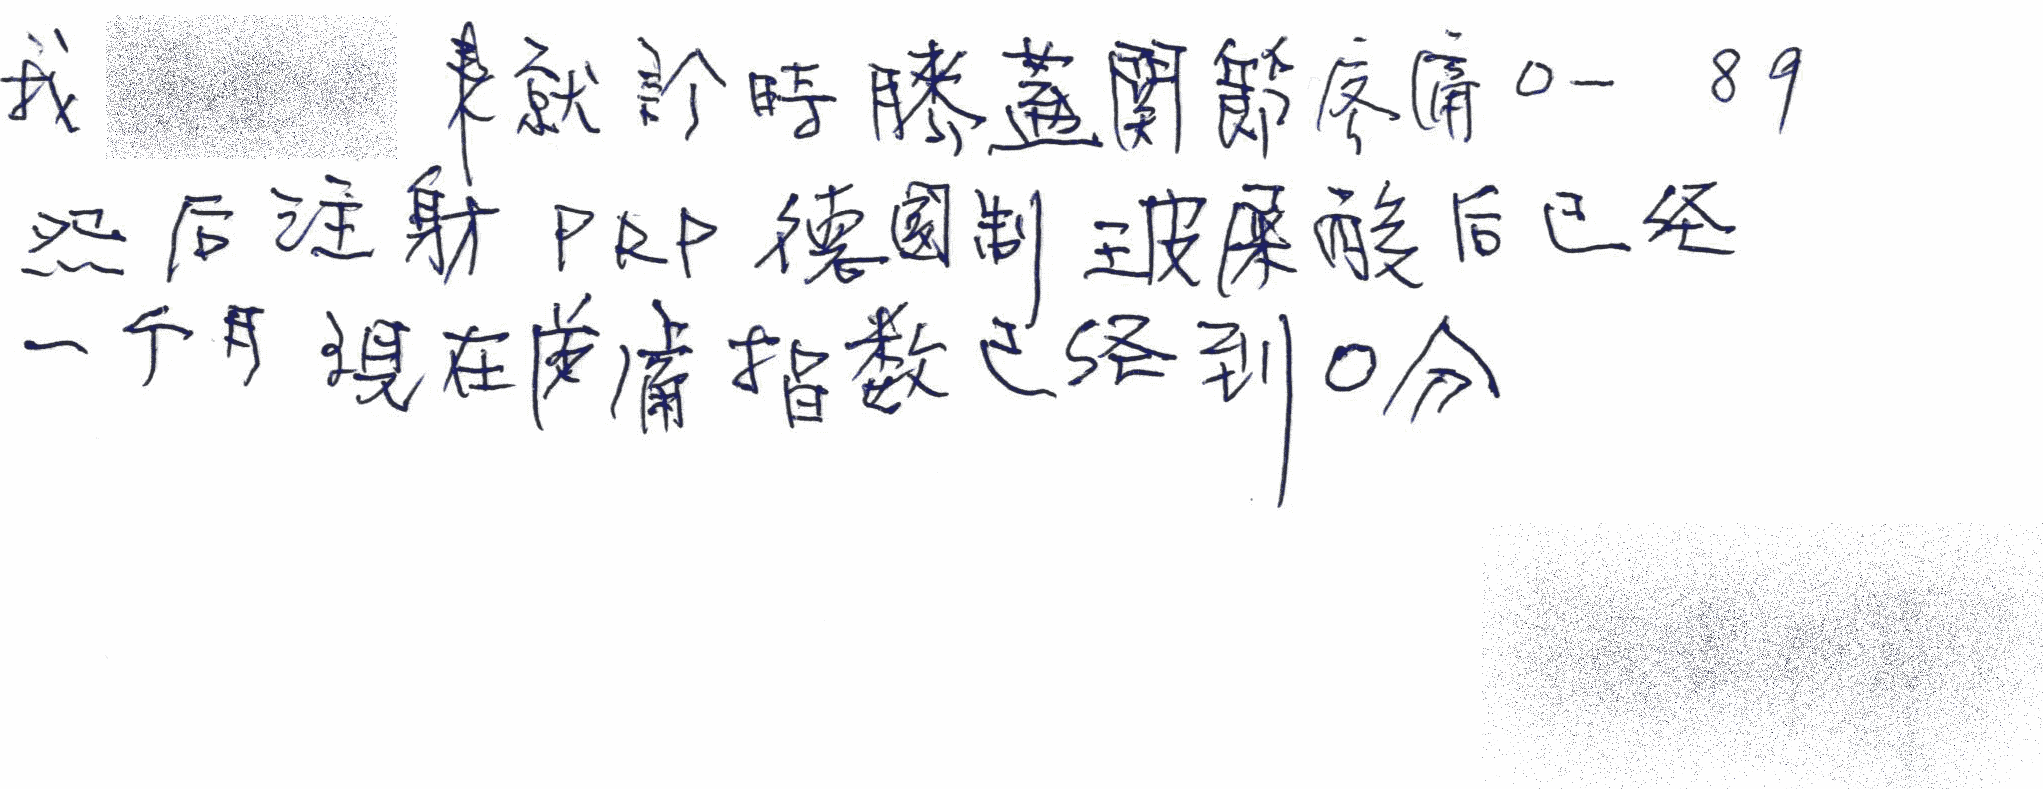 我 來就診時膝蓋關節疼痛0- 89
然后注射PRP德國制玻尿酸后已经
一个月現在疼痛指数已经到0分